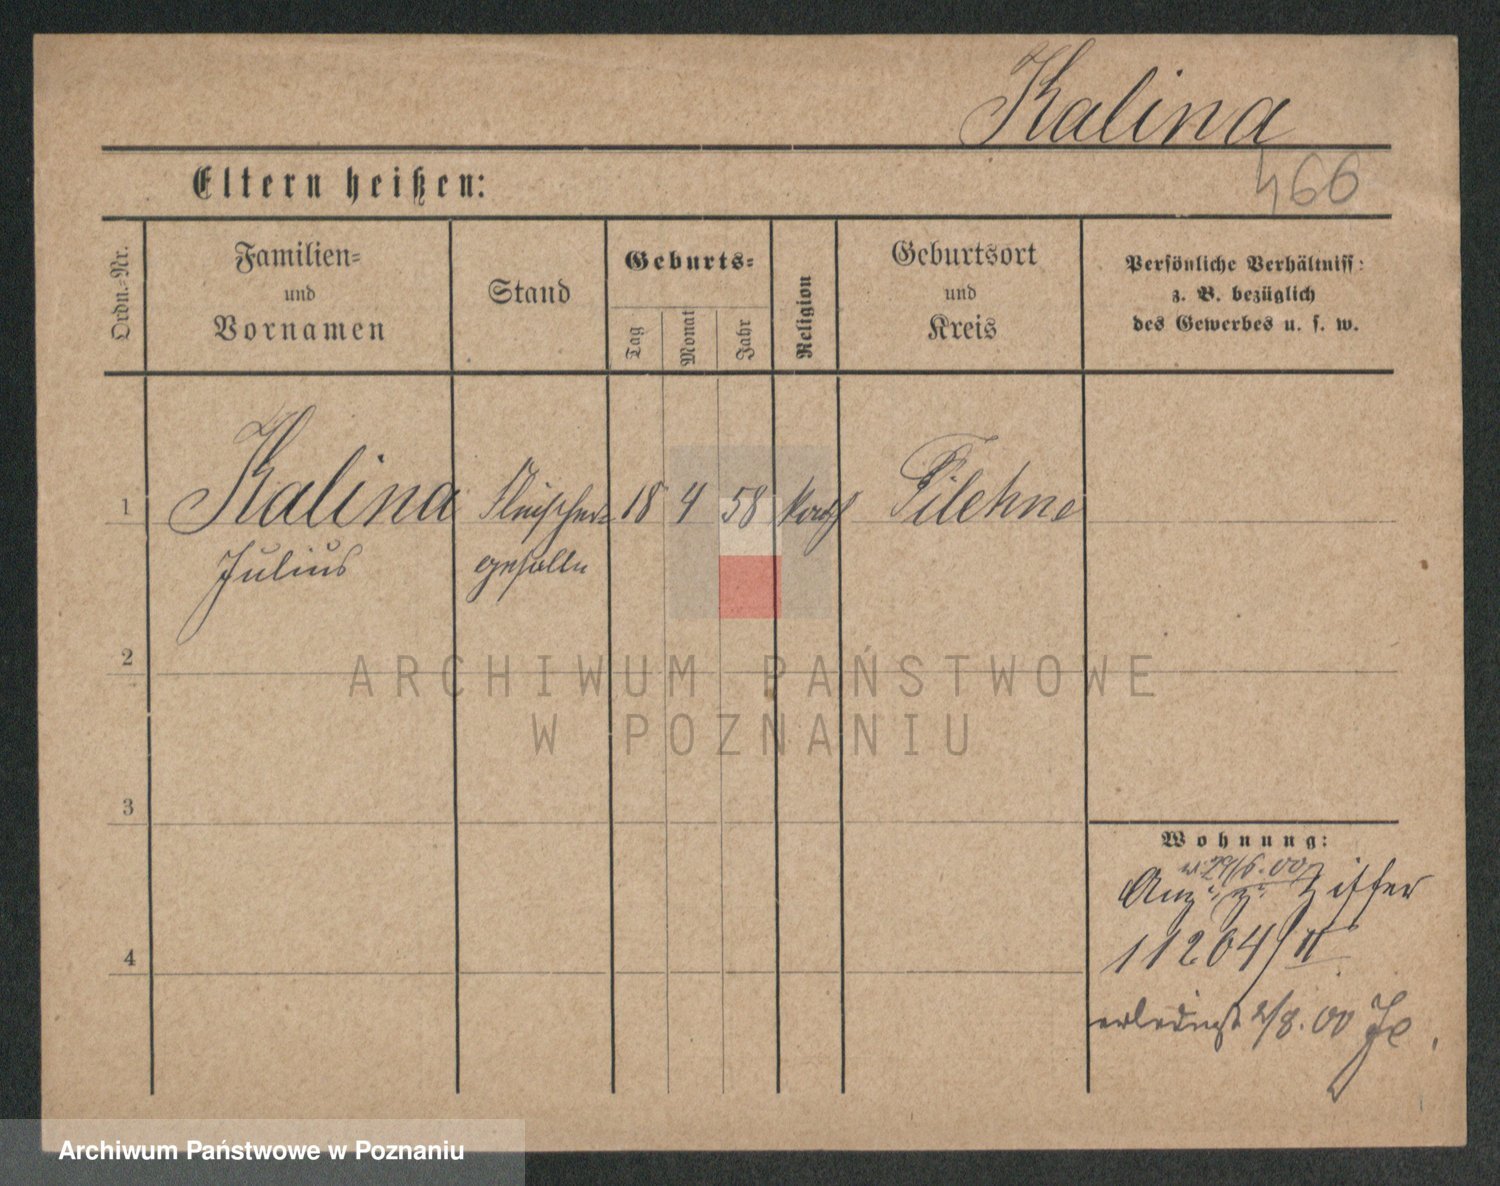 Kalina
466
Eltern heißen:
Ordn.-Nr.
Familien-
und
Vornamen
Stand
Geburts-
Tag
Monat
Jahr
Religion
Geburtsort
und
Kreis
Persönliche Verhältniss:
z. B. bezüglich
des Gewerbes u. s. w.
1
Kalina
Fleischer-
18
4
58
kath
Filehne
Julius
geselle
2
ARCHIWUM PAŃSTWOWE
W POZNANIU
3
Wohnung:
Ziffer
11204/II
4
2/8.00
Archiwum Państwowe w Poznaniu